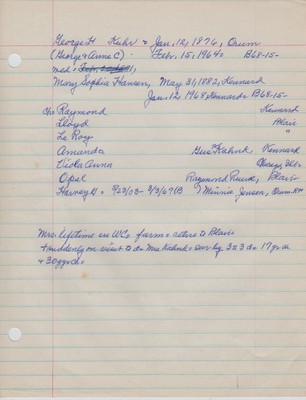 George H Kuhr * Jan, 12, 1874, Orum
(George & Anne C) - Feb. 15, 1964 B68-15-
md:
Mary Sophia Hansen, May 31, 1882, Kennard
Jan. 12 1968, Kennard B68-15-
Ch: Raymond Kennard
Lloyd Blair
Le Roy "
Amanda Geo Kahnk Kennard
Viola Anna Chicago, Ill.
Opal Raymond Blair
Harvey G. 9/23/03 - 3/3/67 (B Minnie Jensen, Orum
Mrs. lifetime on WCo farm & retire to Blair
+ suddenly on visit to da Mrs Kahnk & surv by 3s 3da 17 grch
& 30 ggrch